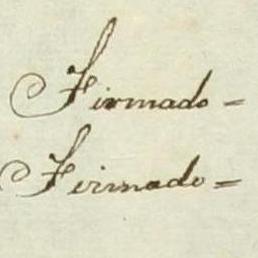 Firmado =
Firmado =